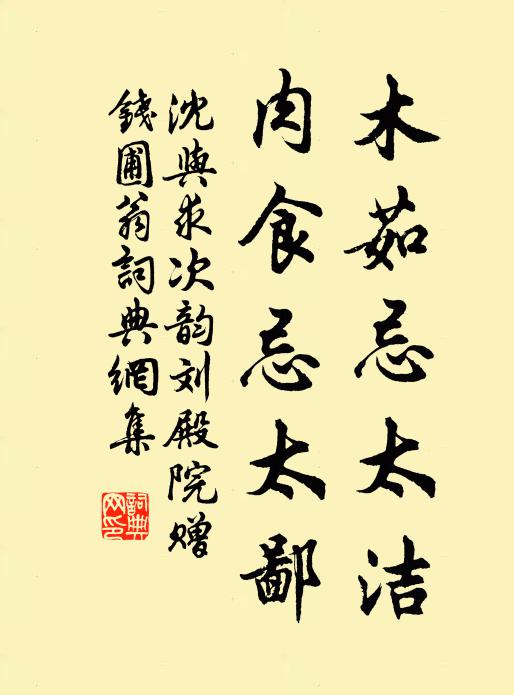 木茹忌太洁
肉食忌太鄙
沈與求次韵刘殿院赠
錢圃翁詞典網集
詞典
网印